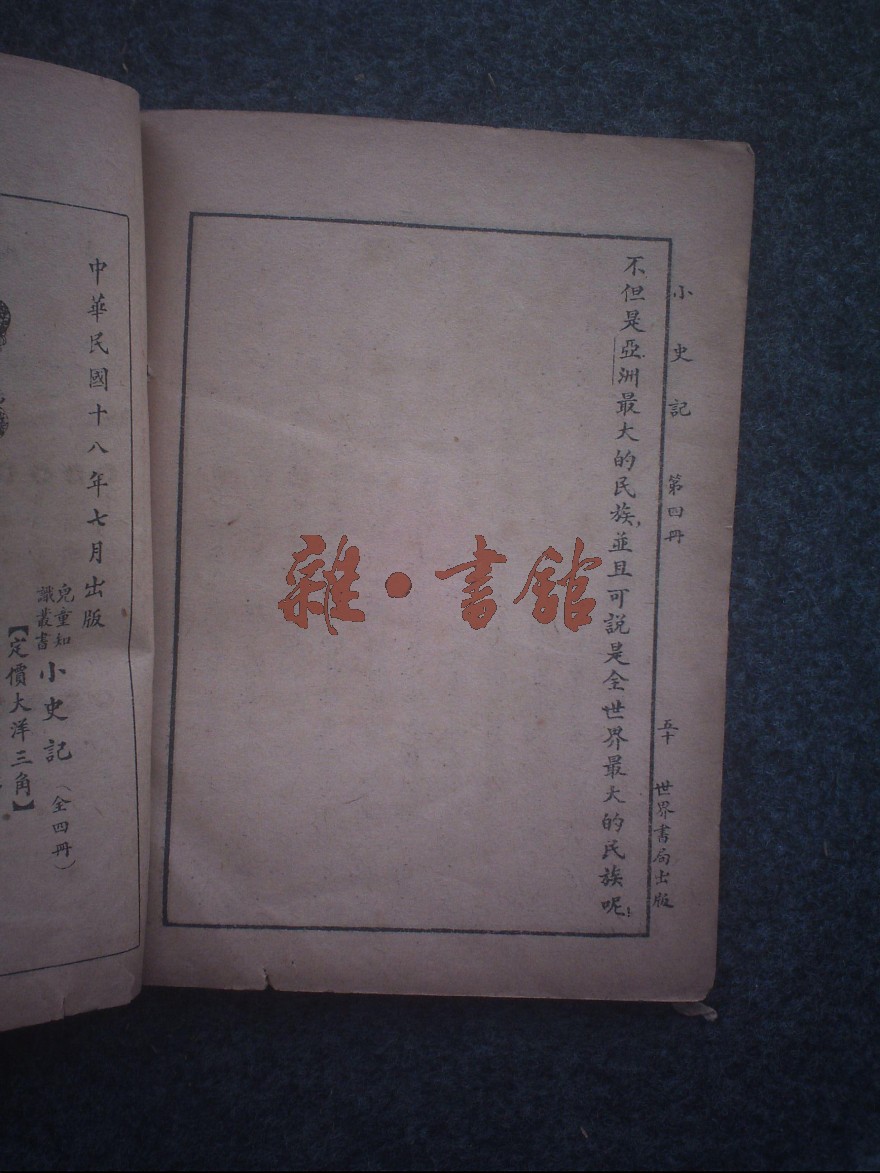 小史記　第四冊　五十　世界書局出版
不但是亞洲最大的民族,並且可說是全世界最大的民族呢!
雜·書館
中華民國十八年七月出版
兒童知識叢書 小史記（全四冊）
【定價大洋三角】